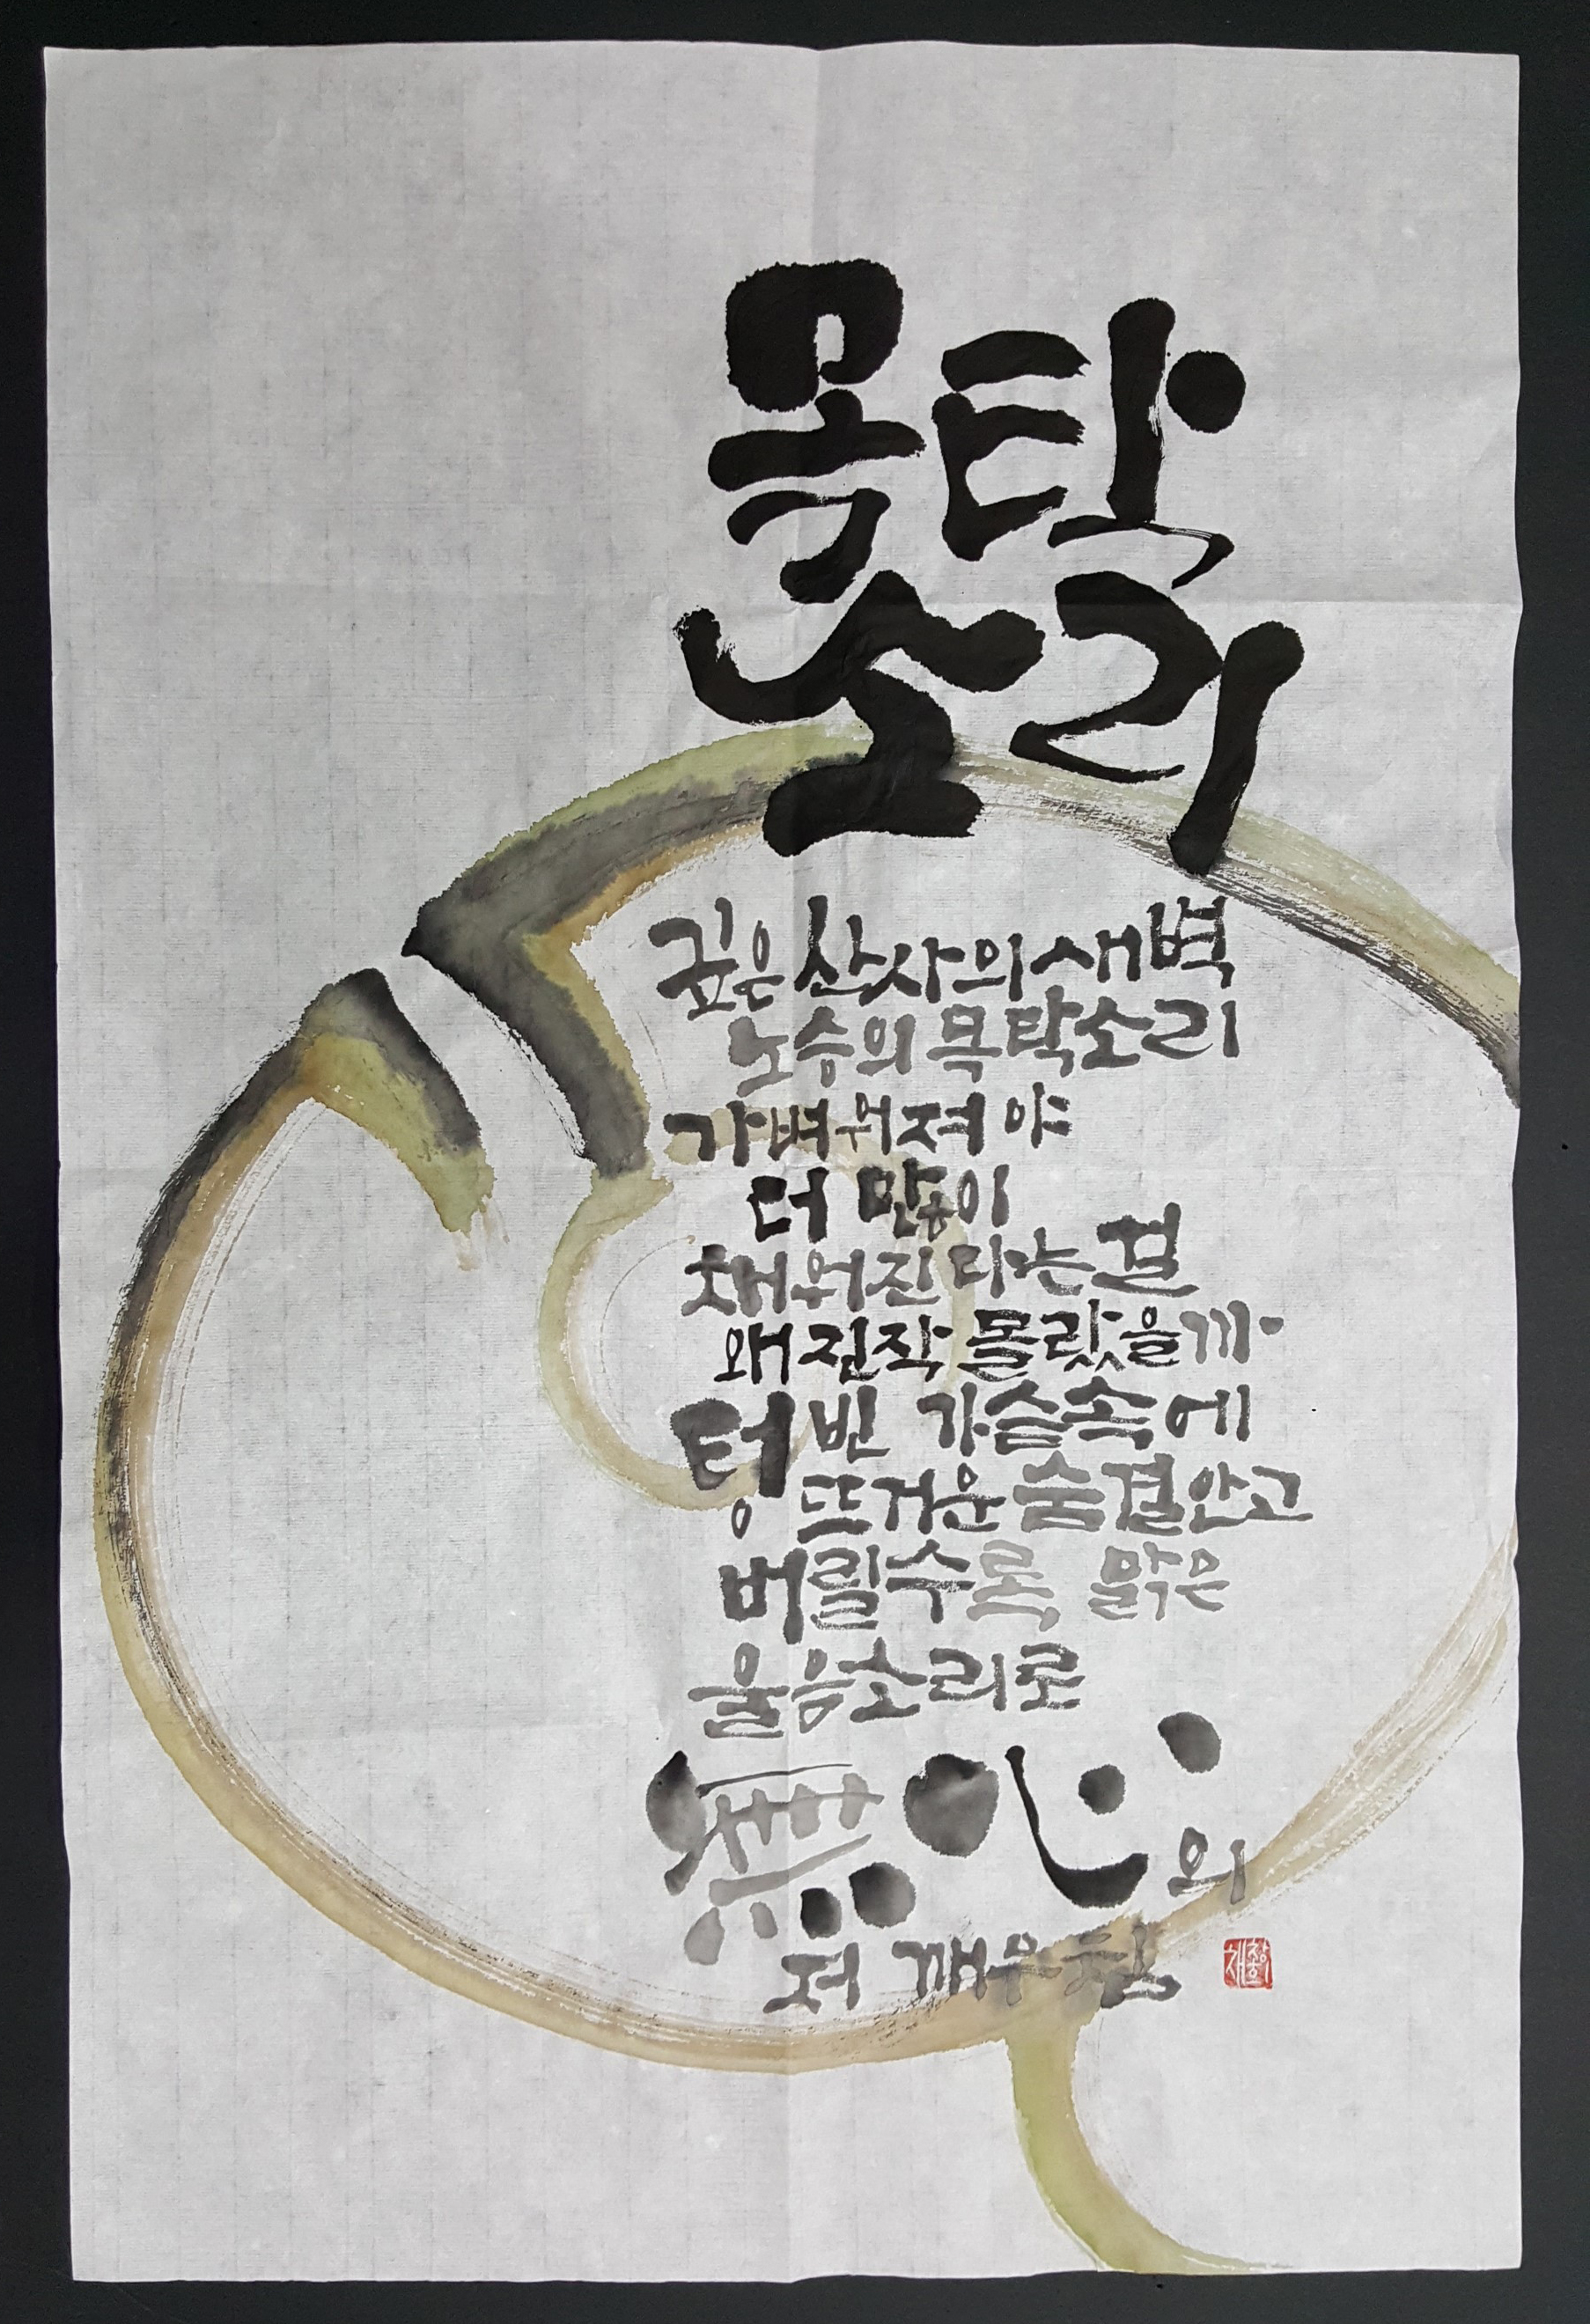 목탁
소리
깊은 산사의 새벽
노승의 목탁소리
가벼워져야
더 많이
채워진다는 걸
왜 진작 몰랐을까
텅 빈 가슴속에
뜨거운 숨결 안고
버릴수록 맑은
울음소리로
無心의
저 깨우침